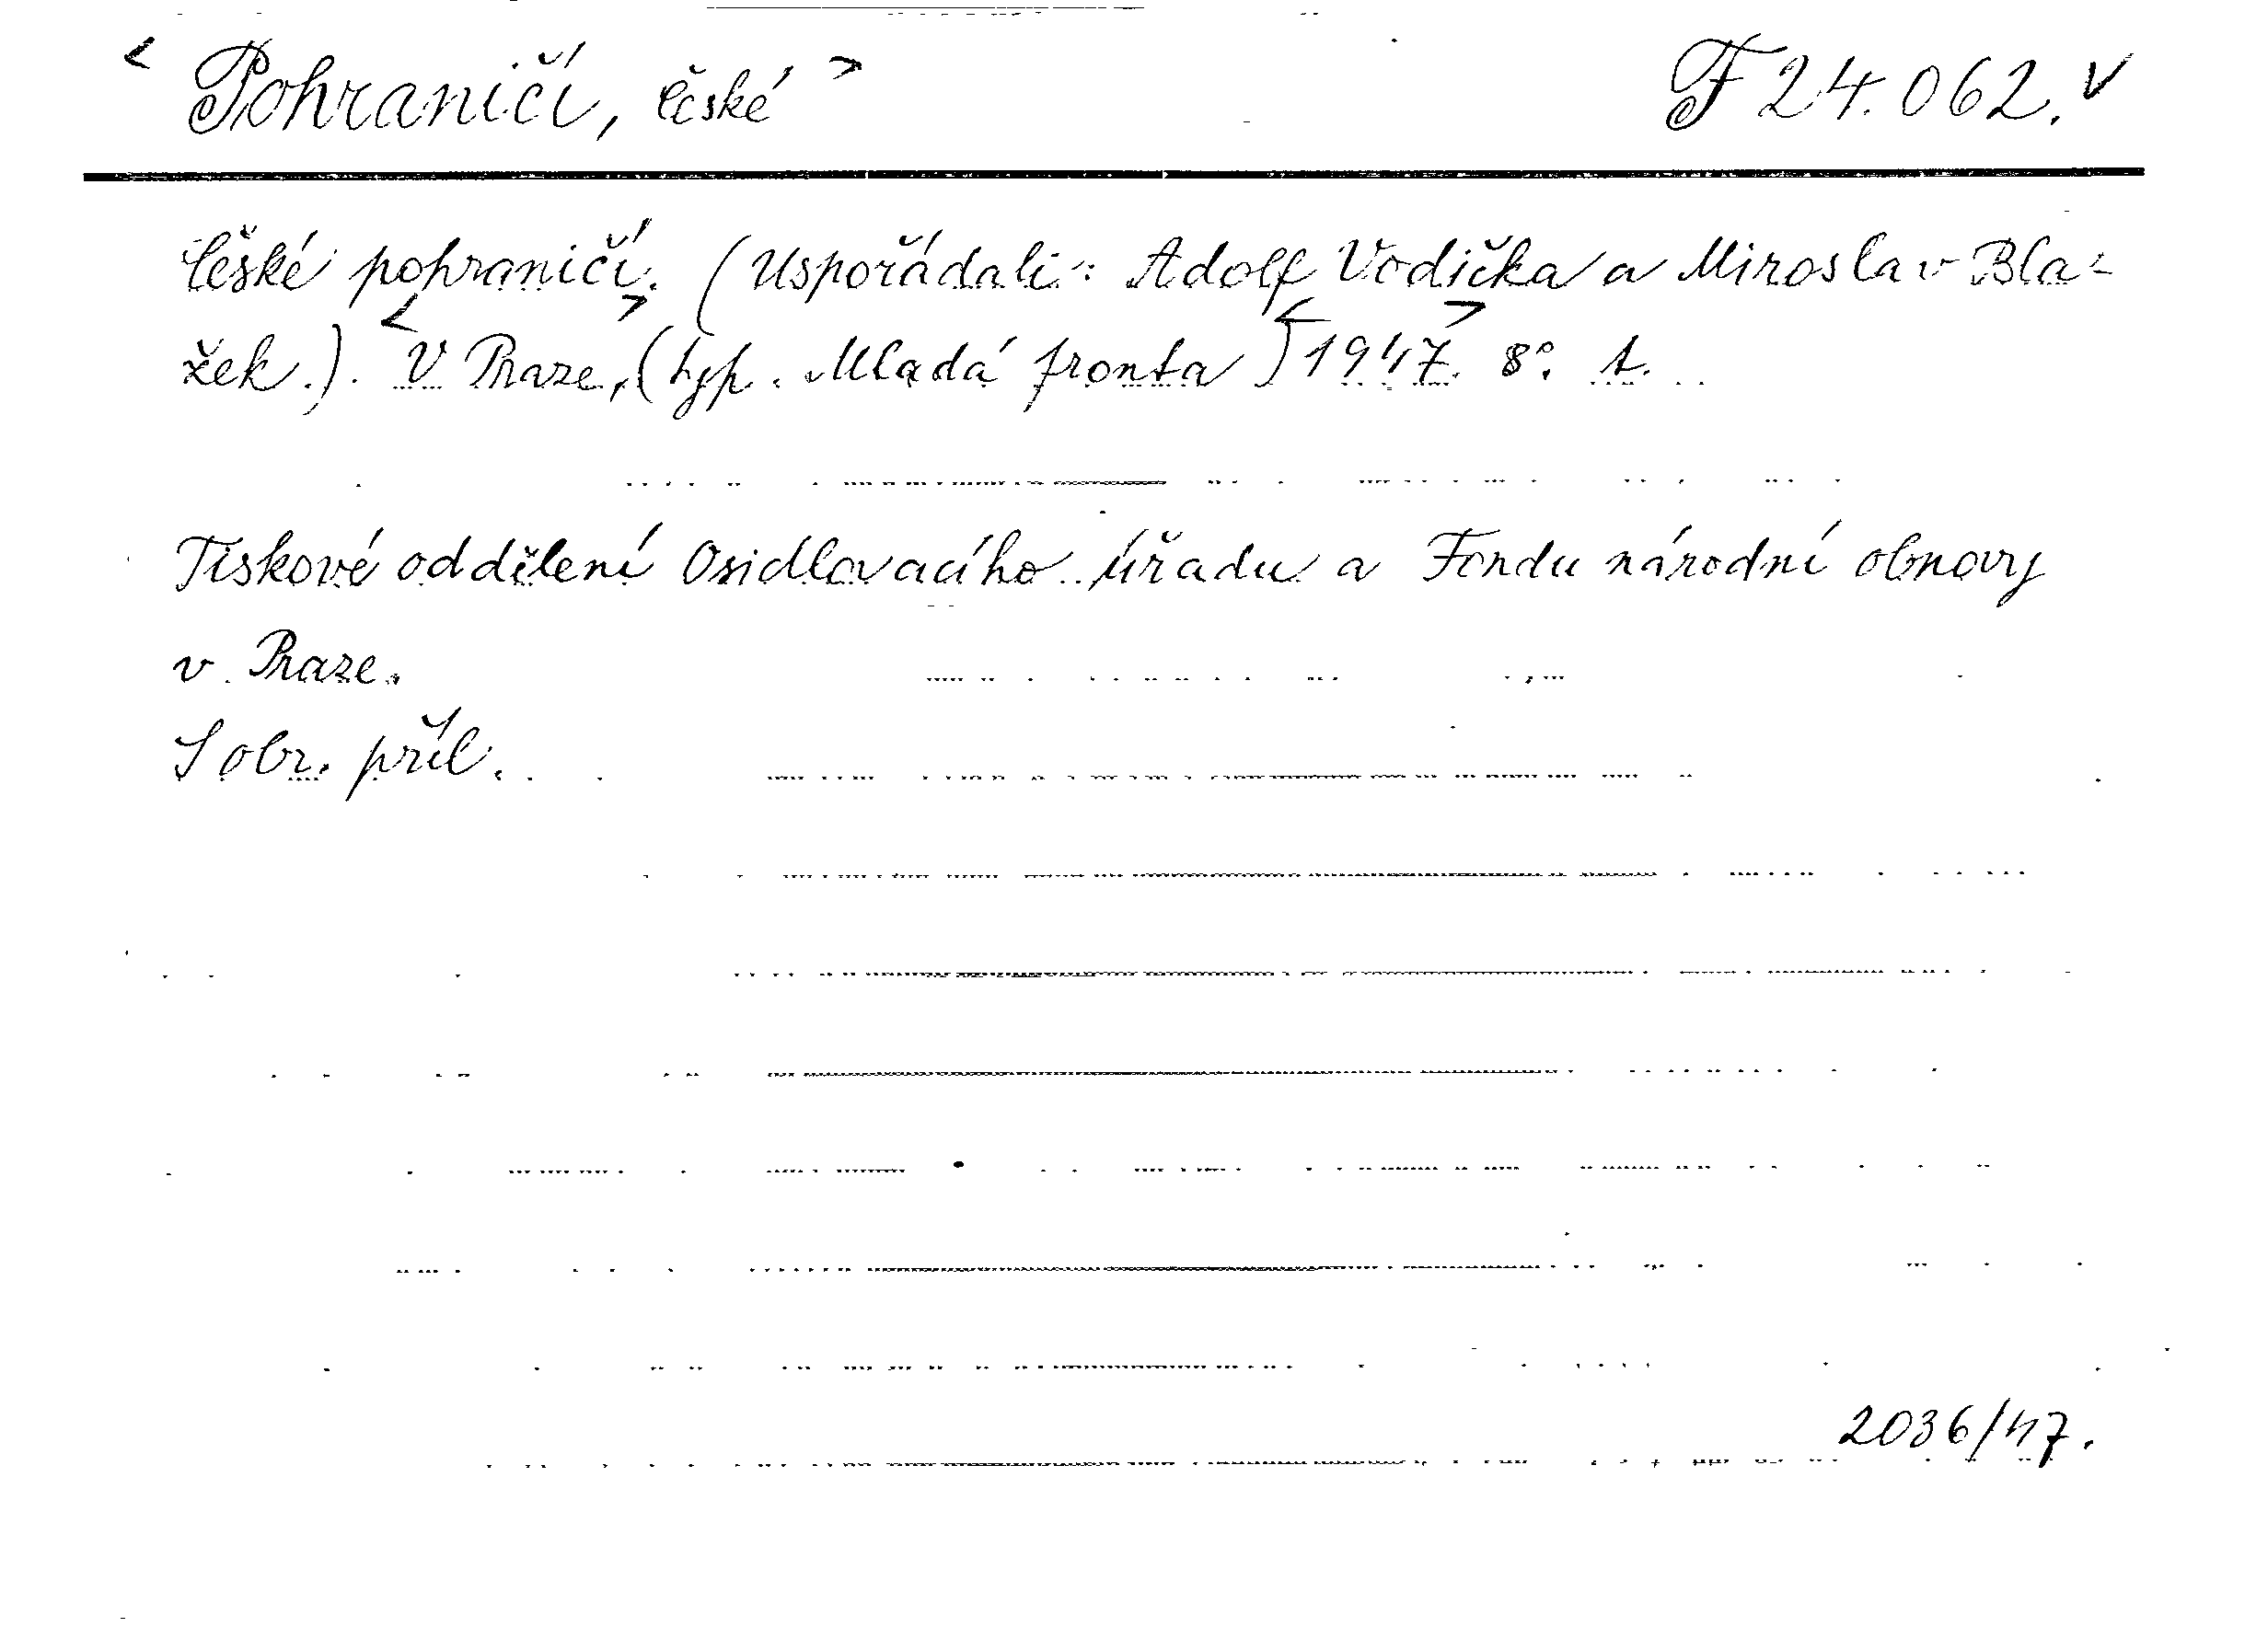 < Pohraničí, české > F 24.062. v
České pohraničí. (Uspořádali: Adolf Vodička a Miroslav Bla-
žek.). <V Praze,> (typ. Mladá fronta) <1947.> 8°. t.
Tiskové oddělení Osidlovacího úřadu a Fondu národní obnovy
v Praze.
S obr. příl.
2036/47.